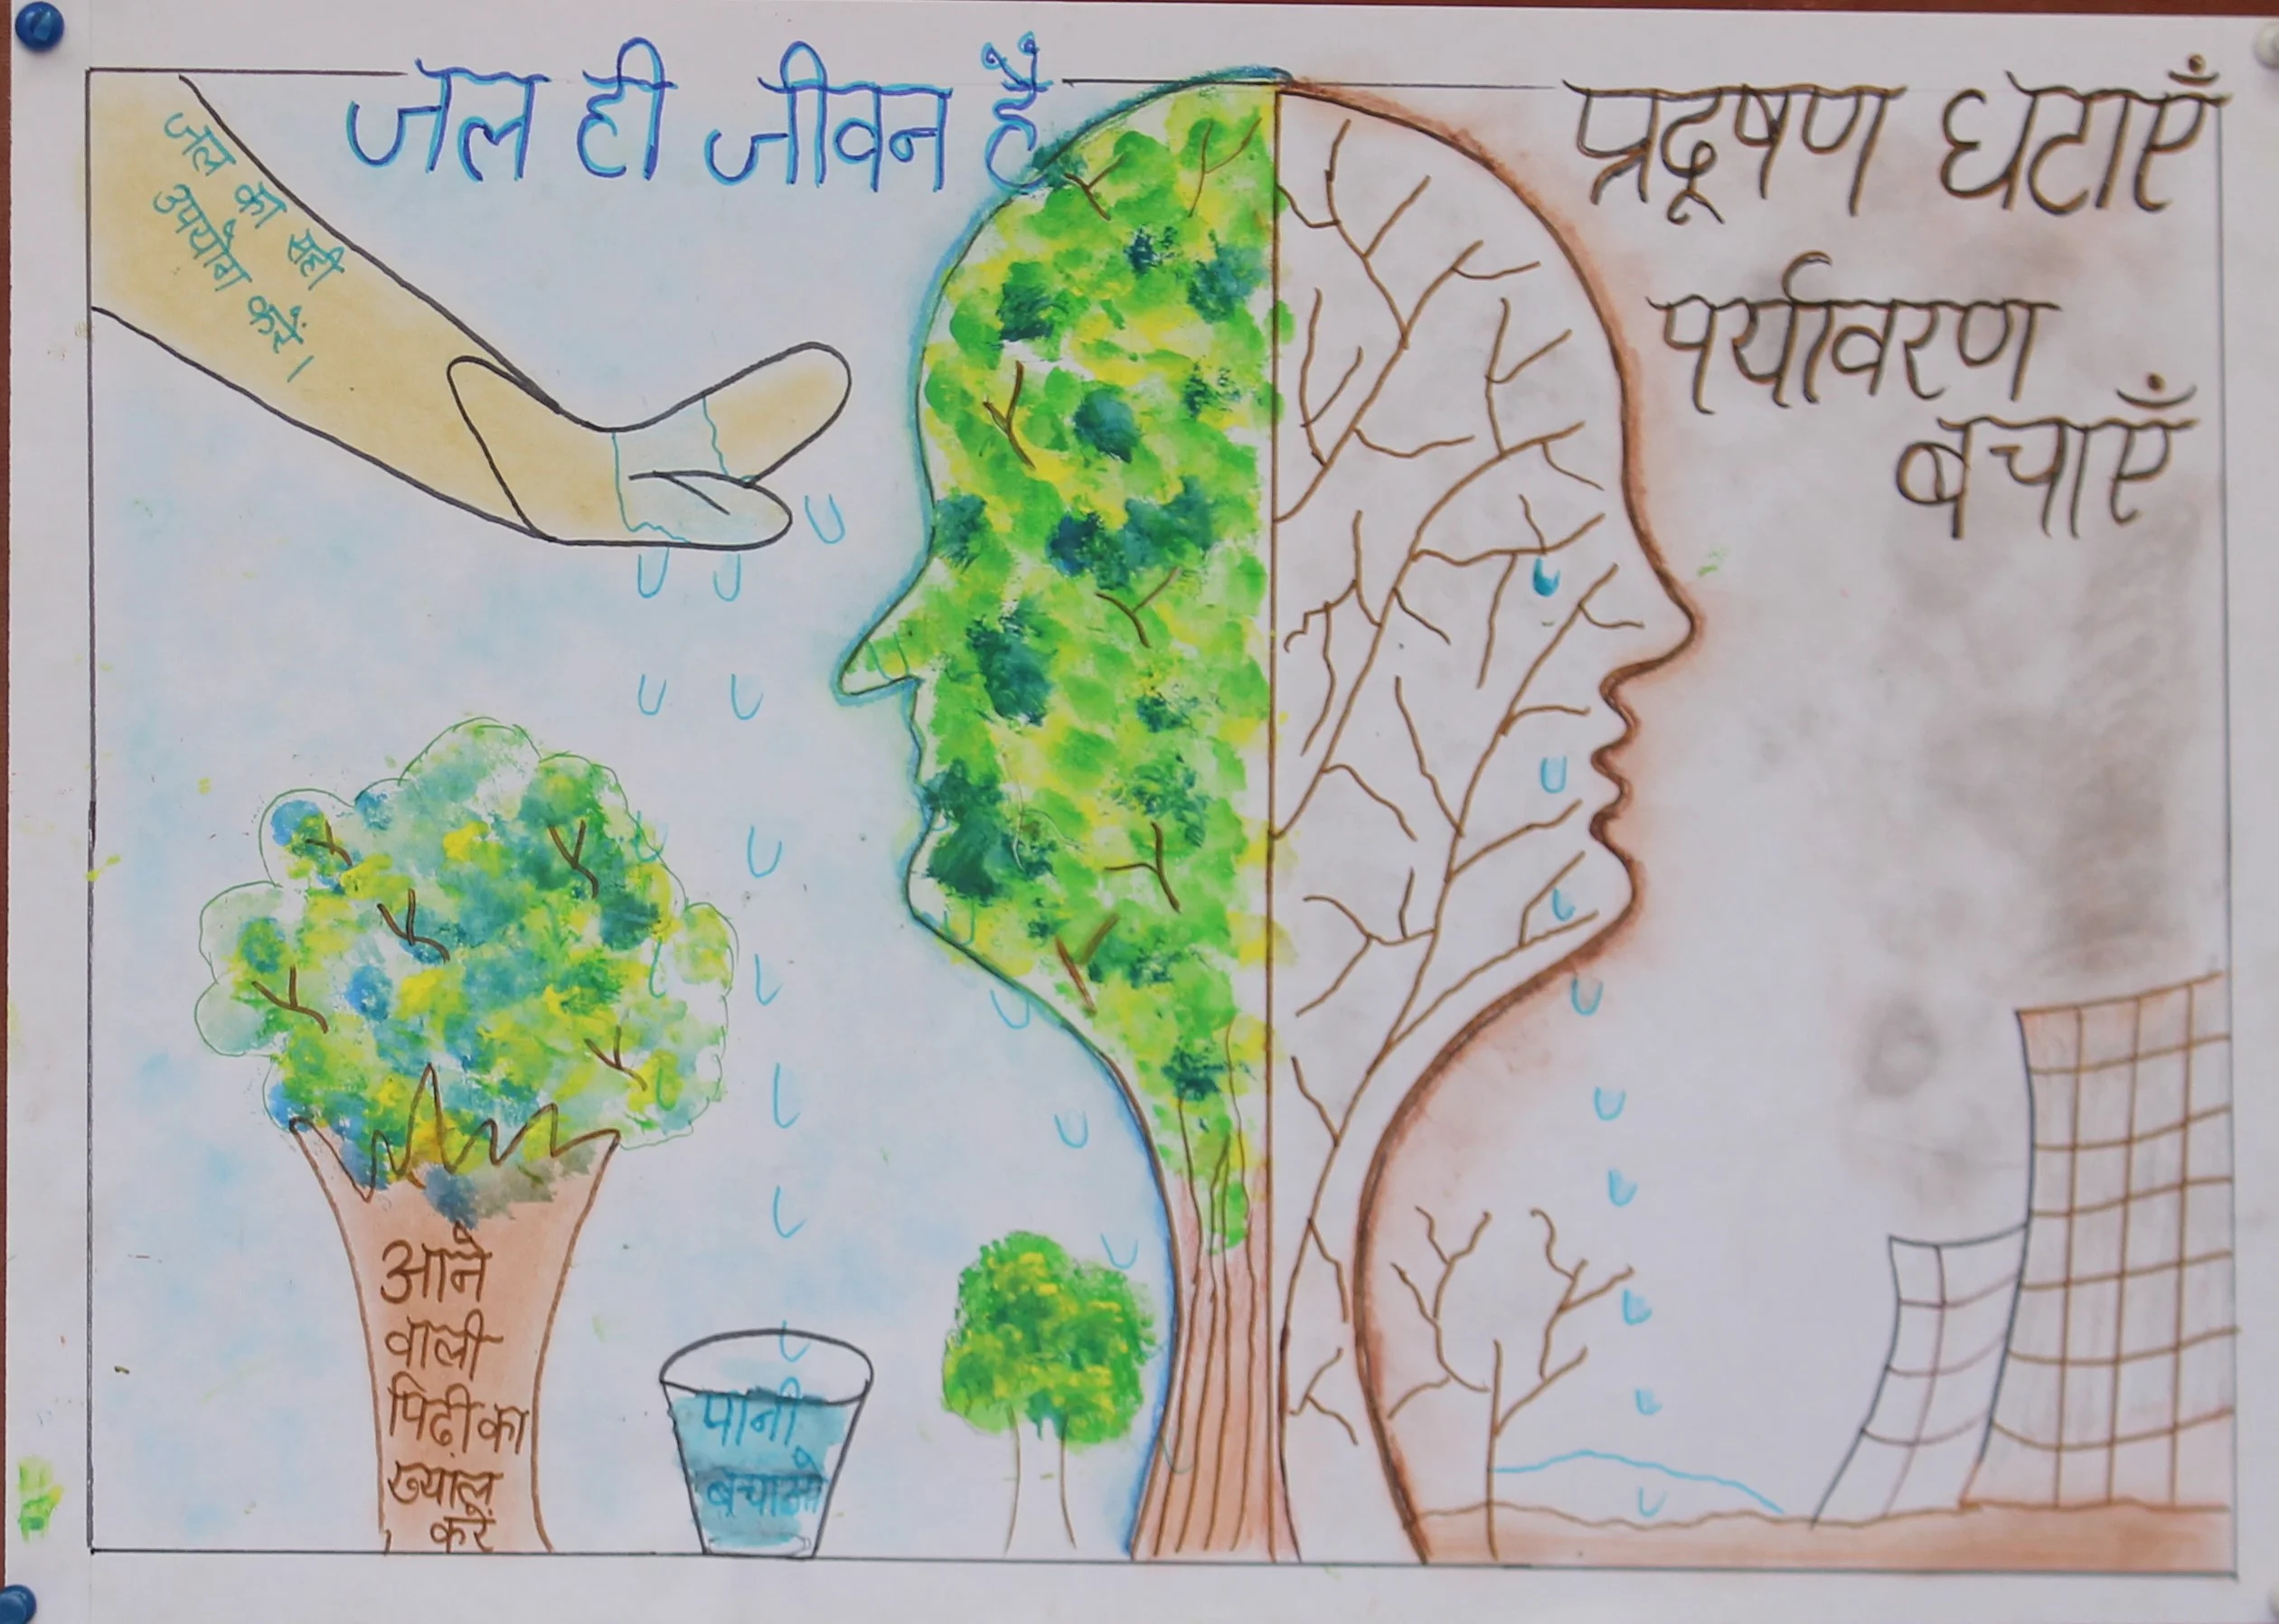 जल ही जीवन है
प्रदूषण घटाएँ
पर्यावरण
बचाएँ
जल का सही
उपयोग करें।
आने
वाली
पिढ़ी का
ख्याल
करें
पानी
बचाओ